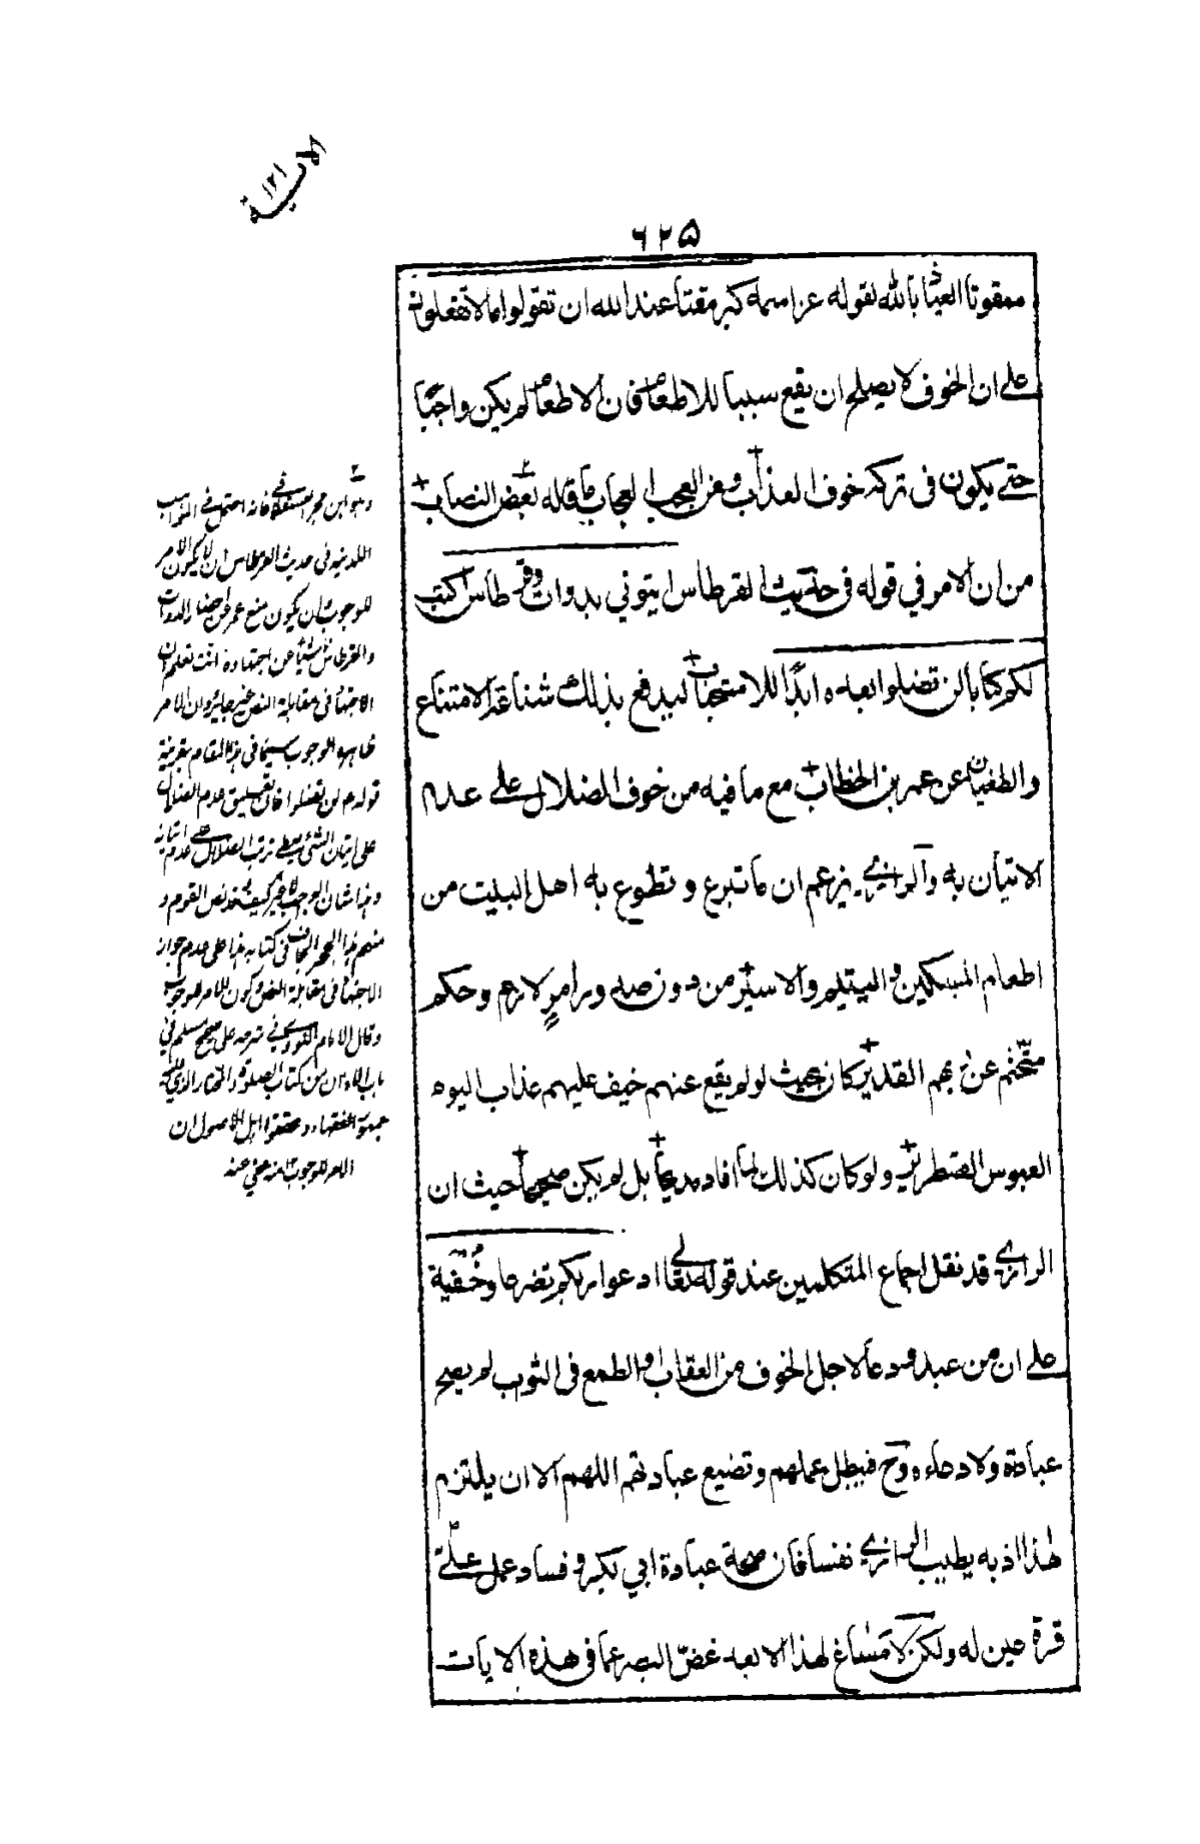 الآية
١٢١
٦٢٥
ممقوتا العياذ بالله لقوله عز اسمه كبر مقتا عند الله ان تقولوا مالا تفعلون
على ان الخوف لا يصلح ان يقع سببا للاطعام فان الاطعام لم يكن واجبًا
حتى يكون فى تركه خوف العذاب ومن العجب العجاب ما قاله بعض النصاب
من ان الامر في قوله فى حديث القرطاس ايتوني بدوات وقرطاس اكتب
لكم كتابا لن تضلوا بعده ابدًا للاستحباب ليدفع بذلك شناعة الامتناع
والطغيان عن عمر بن الخطاب مع ما فيه من خوف الضلال على عدم
الاتيان به والرازي يزعم ان ما تبرع وتطوع به اهل البيت من
اطعام المسكين واليتيم والاسير من دون صدور امرٍ لازم وحكم
متحتم عن ربهم القدير كان بحيث لو لم يقع عنهم خيف عليهم عذاب اليوم
العبوس القمطرير ولو كان كذلك لما افاد مدحا بل لم يكن صحيحا حيث ان
الرازي قد نقل اجماع المتكلمين عند قوله تعالى ادعوا ربكم تضرعا وخُفية
على ان من عبد ودعا لاجل الخوف من العقاب والطمع فى الثوب لم يصح
عبادته ولا دعاءه وح فيبطل عملهم وتضيع عبادتهم اللهم الا ان يلتزم
لهذا اذ به يطيب الرازي نفسا فان صحة عبادة ابي بكر وفساد عمل علىّ
قرة عين له ولكن لا مساغ لهذا الا بعد غضّ البصر عما فى هذه الايات
وهو ابن حجر العسقلاني فانه احتمل في المواهب
اللدنيه فى حديث القرطاس ان لا يكون الامر
للوجوب ان يكون منع عمر من احضار الدوات
والقرطاس ناشيا عن اجتهاده انت تعلم ان
الاجتهاد فى مقابلة النص غير جائز وان الامر
ظاهره الوجوب سيما فى هذا المقام بقرينة
قوله م لن تضلوا فان تعليق عدم الضلال
على اتيان الشئ يعطي ترتب الضلال على عدم اتيانه
وهذا شان الوجوب كيف وقد نص القوم و
منهم هذا الحجر الجافى فى كتابه هذا على عدم جواز
الاجتهاد فى مقابلة النص وكون الامر للوجوب
وقال الامام النووي في شرحه على صحيح مسلم في
باب الاذان من كتاب الصلوة والمختار الذي عليه
جمهور الفقهاء ومحققوا اهل الاصول ان
الامر للوجوب منه عفي عنه